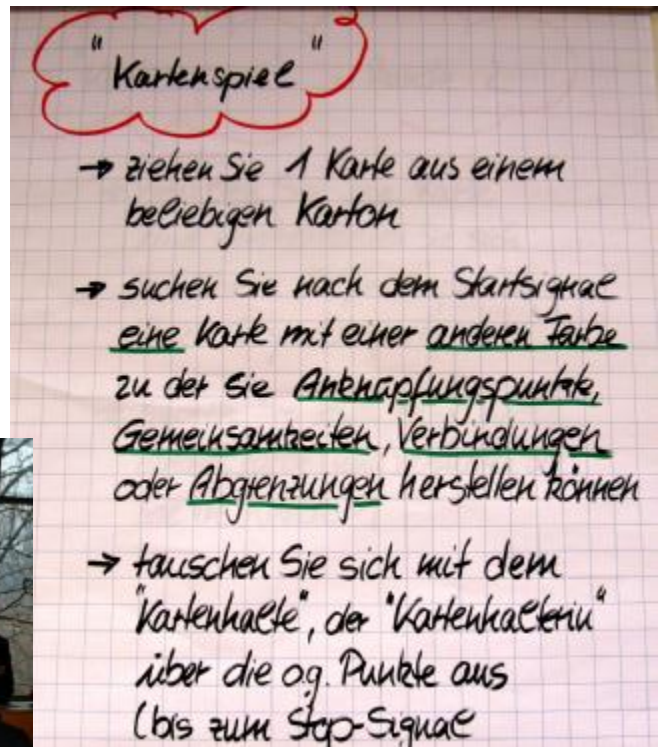 "Kartenspiel"
→ ziehen Sie 1 Karte aus einem
beliebigen Karton
→ suchen Sie nach dem Startsignal
eine Karte mit einer anderen Farbe
zu der Sie Anknüpfungspunkte,
Gemeinsamkeiten, Verbindungen
oder Abgrenzungen herstellen können
→ tauschen Sie sich mit dem
"Kartenhalte", der "Kartenhalterin"
über die o.g. Punkte aus
(bis zum Stop-Signal